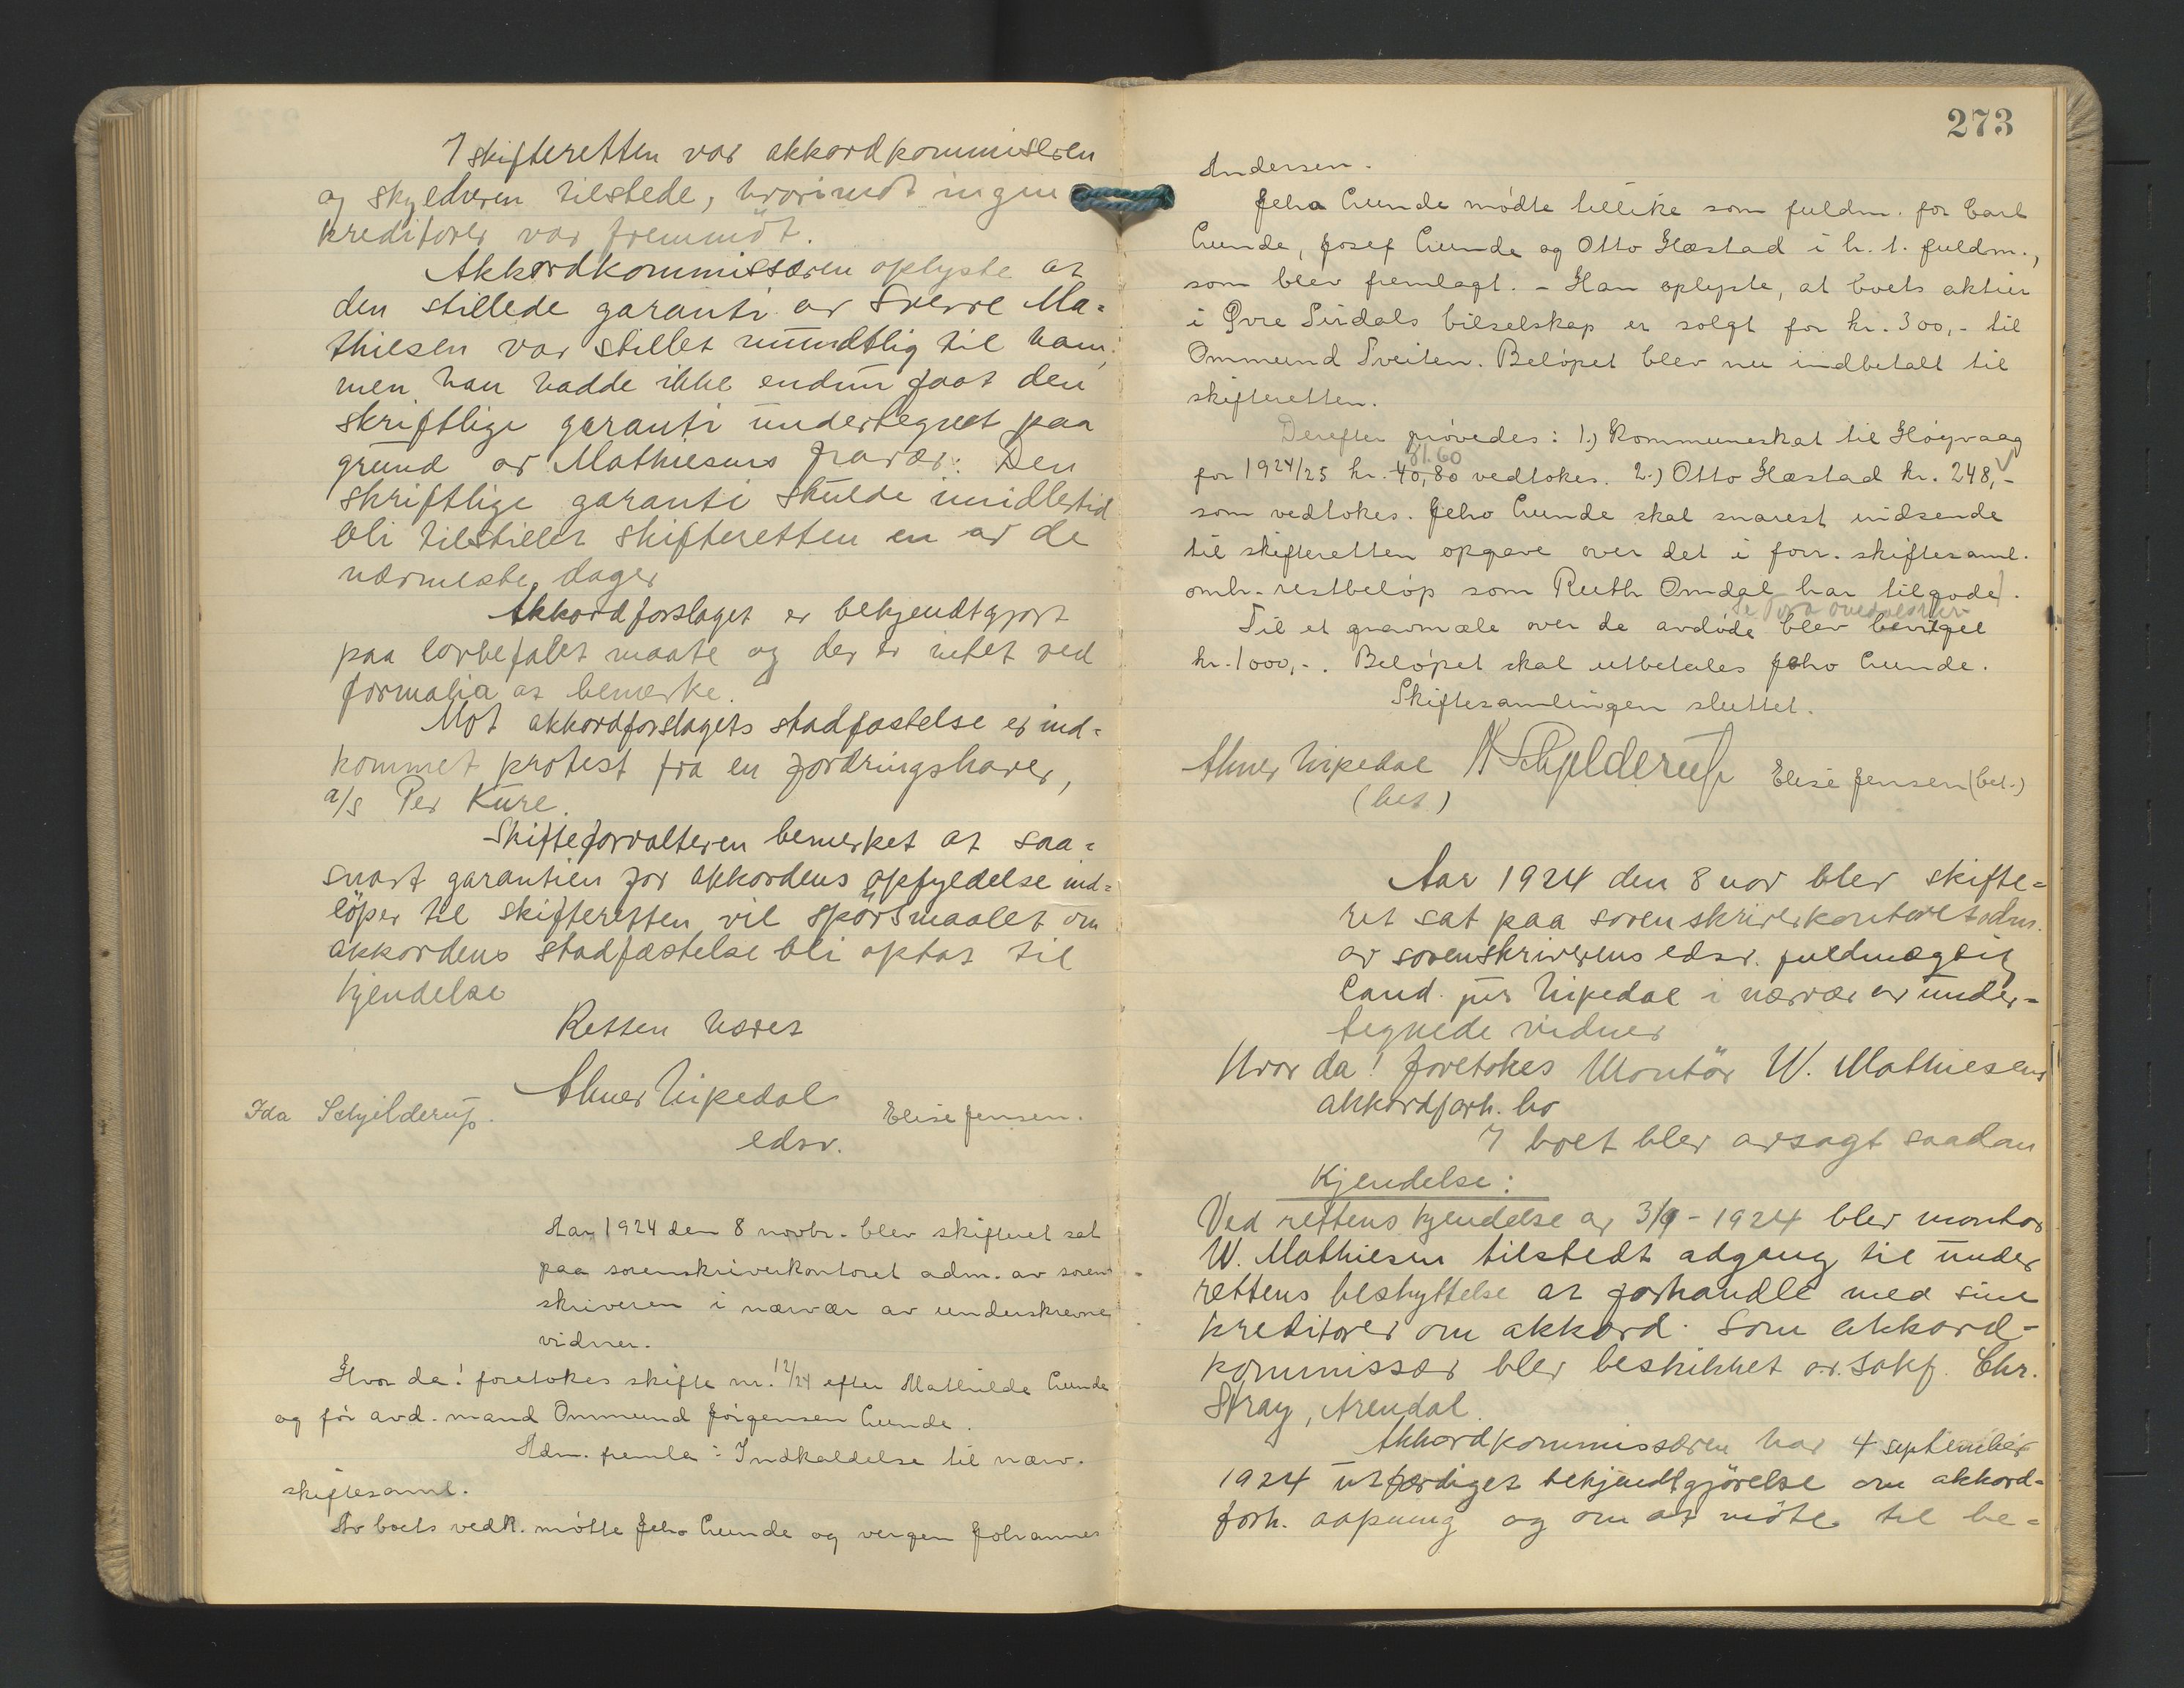 I skifteretten var akkordkommisæren
og skyldneren tilstede, hvorimot ingen
kreditorer var fremmøt.
Akkordkommissæren oplyste at
den stillede garanti av Sverre Ma-
thiesen var stillet mundtlig til ham,
men han hadde ikke endnu faat den
skriftlige garanti undertegnet paa
grund av Mathiesens fravær. Den
skriftlige garanti skulde imidlertid
bli tilstillet skifteretten en av de
nærmeste dager
Akkordforslaget er bekjendtgjort
paa lovbefalet maate og der er intet ved
formalia at bemerke.
Mot akkordforslagets stadfæstelse er ind-
kommet protest fra en fordringshaver,
a/s Per Kure.
Skifteforvalteren bemerket at saa-
snart garantien for akkordens opfyldelse ind-
löper til skifteretten vil spörsmaalet om
akkordens stadfæstelse bli optat til
kjendelse
Retten hævet
Abner Uipedal
edsv.
Ida Schjelderup.
Elise Jensen.
Aar 1924 den 8 novbr. blev skifteret sat
paa sorenskriverkontoret adm. av soren-
skriveren i nærvær av underskrevne
vidner.
Hvor da! foretokes skifte nr. 12/24 efter Mathilde Lunde
og før avd. mand Ommund Jørgensen Lunde.
Adm. fremla: Indkaldelse til nærv.
skiftesaml.
Av boets vedk. møtte Jeho Lunde og vergen Johannes
273
Andersen.
Jeho Lunde mødte tillike som fuldm. for Carl
Lunde, Josef Lunde og Otto Hæstad i h. t. fuldm.,
som blev fremlagt. - Han oplyste, at boets aktier
i Øvre Sirdals bilselskap er solgt for kr. 300,- til
Ommund Tveiten. Beløpet blev nu indbetalt til
skifteretten.
Derefter prøvedes: 1.) Kommuneskat til Høgvaag
31.60
for 1924/25 kr. 40,80 vedtokes. 2.) Otto Hæstad kr. 248,-
som vedtokes. Jeho Lunde skal snarest indsende
til skifteretten opgave over det i forr. skiftesaml.
omh. restbeløp som Ruth Omdal har tilgode.
Til et gravmæle over de avdøde blev bevilget
kr. 1000,-. Beløpet skal utbetales Jeho Lunde.
Skiftesamlingen sluttet.
Abner Uipedal
(bet.)
Schjelderup
Elise Jensen (bet.)
Aar 1924 den 8 nov blev skifte-
ret sat paa sorenskriverkontoret adm.
av sorenskriverens edsv. fuldmægtig
Cand. jur Uipedal i nærvær av under-
tegnede vidner
Hvor da! foretokes Montör W. Mathiesens
akkordforh. bo
I boet blev avsagt saadan
Kjendelse:
Ved rettens kjendelse av 3/9-1924 blev montør
W. Mathiesen tilstedt adgang til under
rettens beskyttelse at forhandle med sine
kreditorer om akkord. Som akkord-
kommissær blev beskikket o.r.sakf. Chr.
Stray, Arendal.
Akkordkommissæren har 4 september
1924 utfærdiget bekjendtgjörelse om akkord-
forh. aapning og om at möte til be-